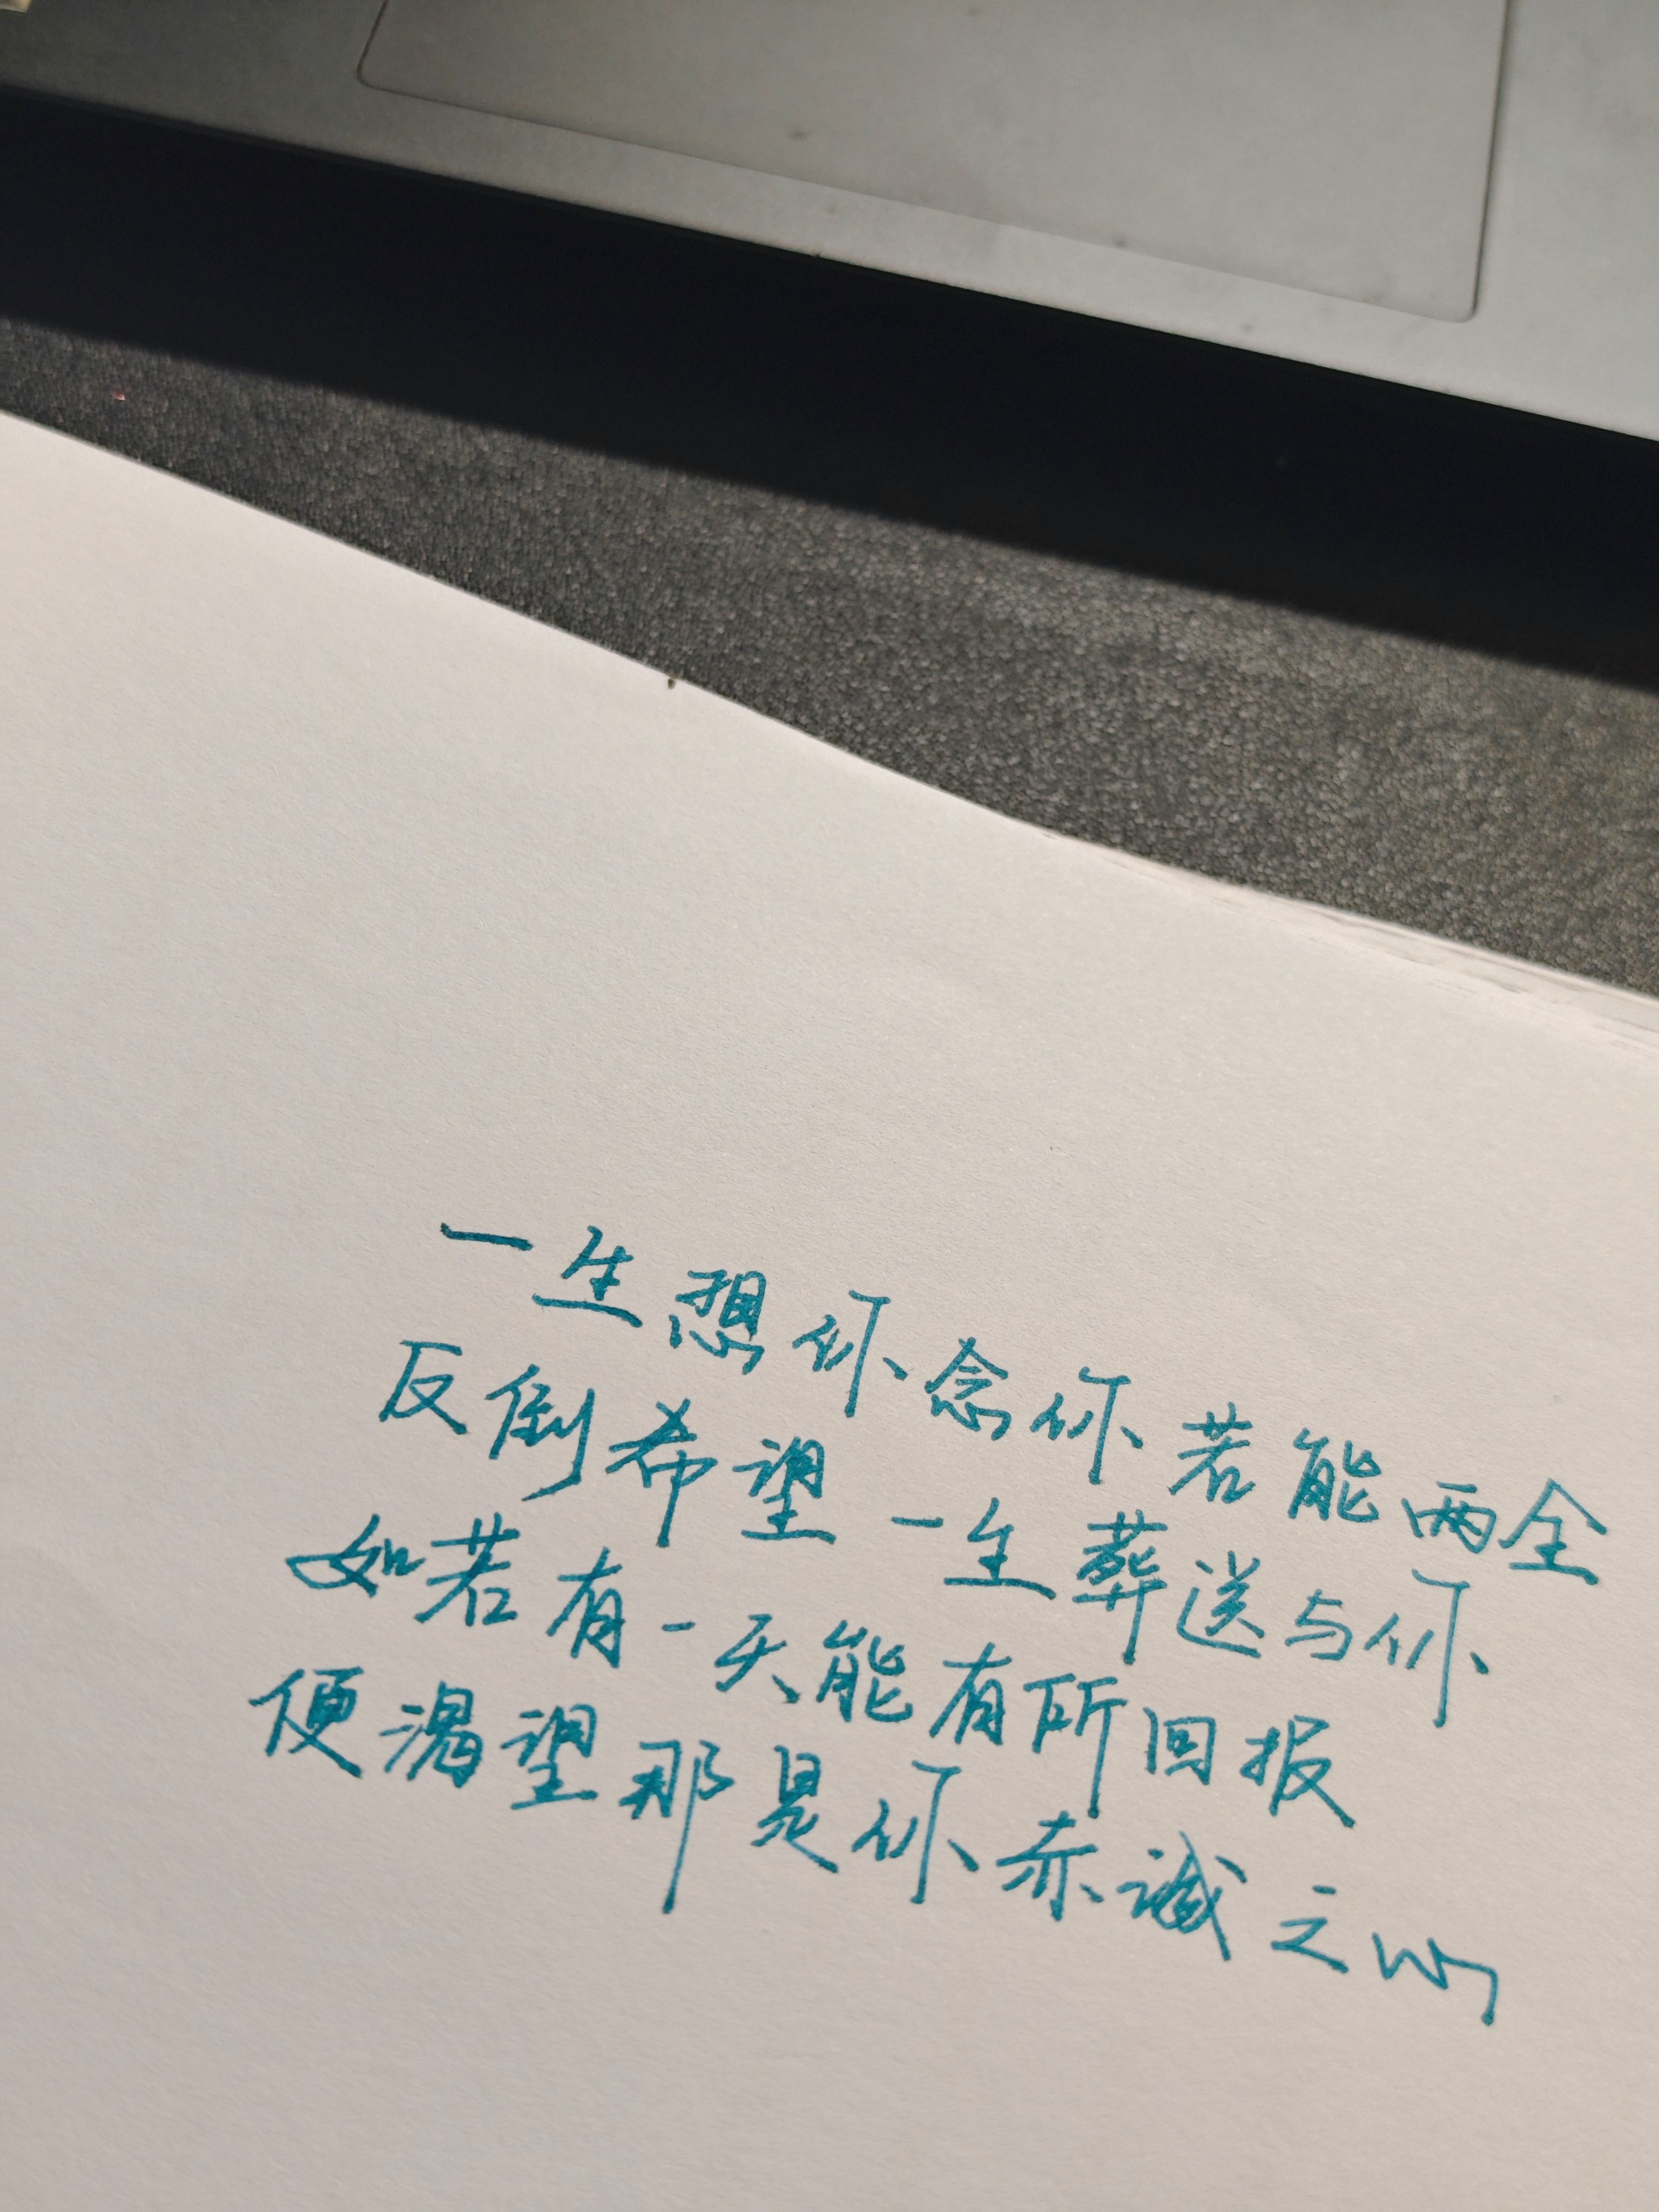 一生想你念你若能两全
反倒希望一生葬送与你
如若有一天能有所回报
便渴望那是你赤诚之心